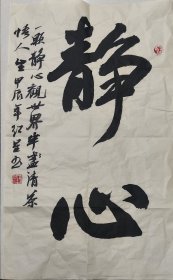 静心
一颗静心观世界半盏清茶
悟人生甲辰年红兰书